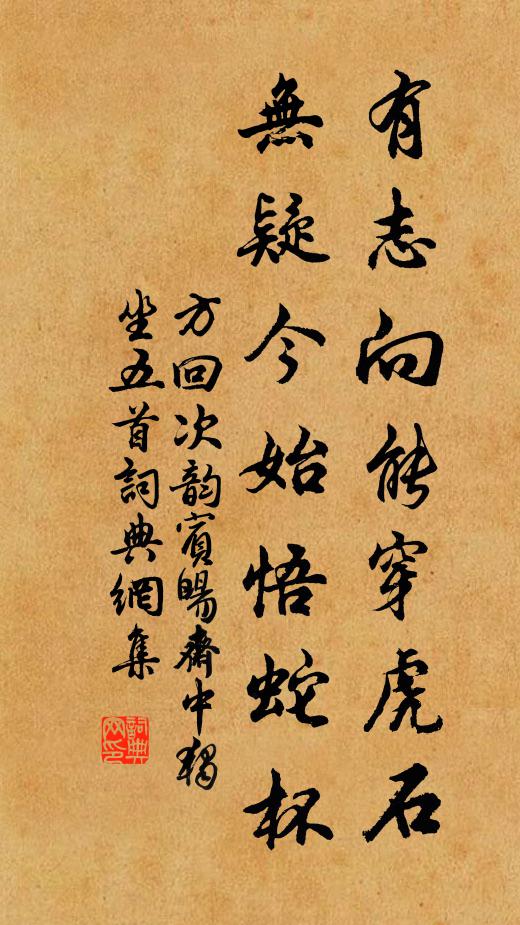 有志向能穿虎石
無疑今始悟蛇杯
方回次韵賓暘齋中獨
坐五首詞典網集
詞典網印